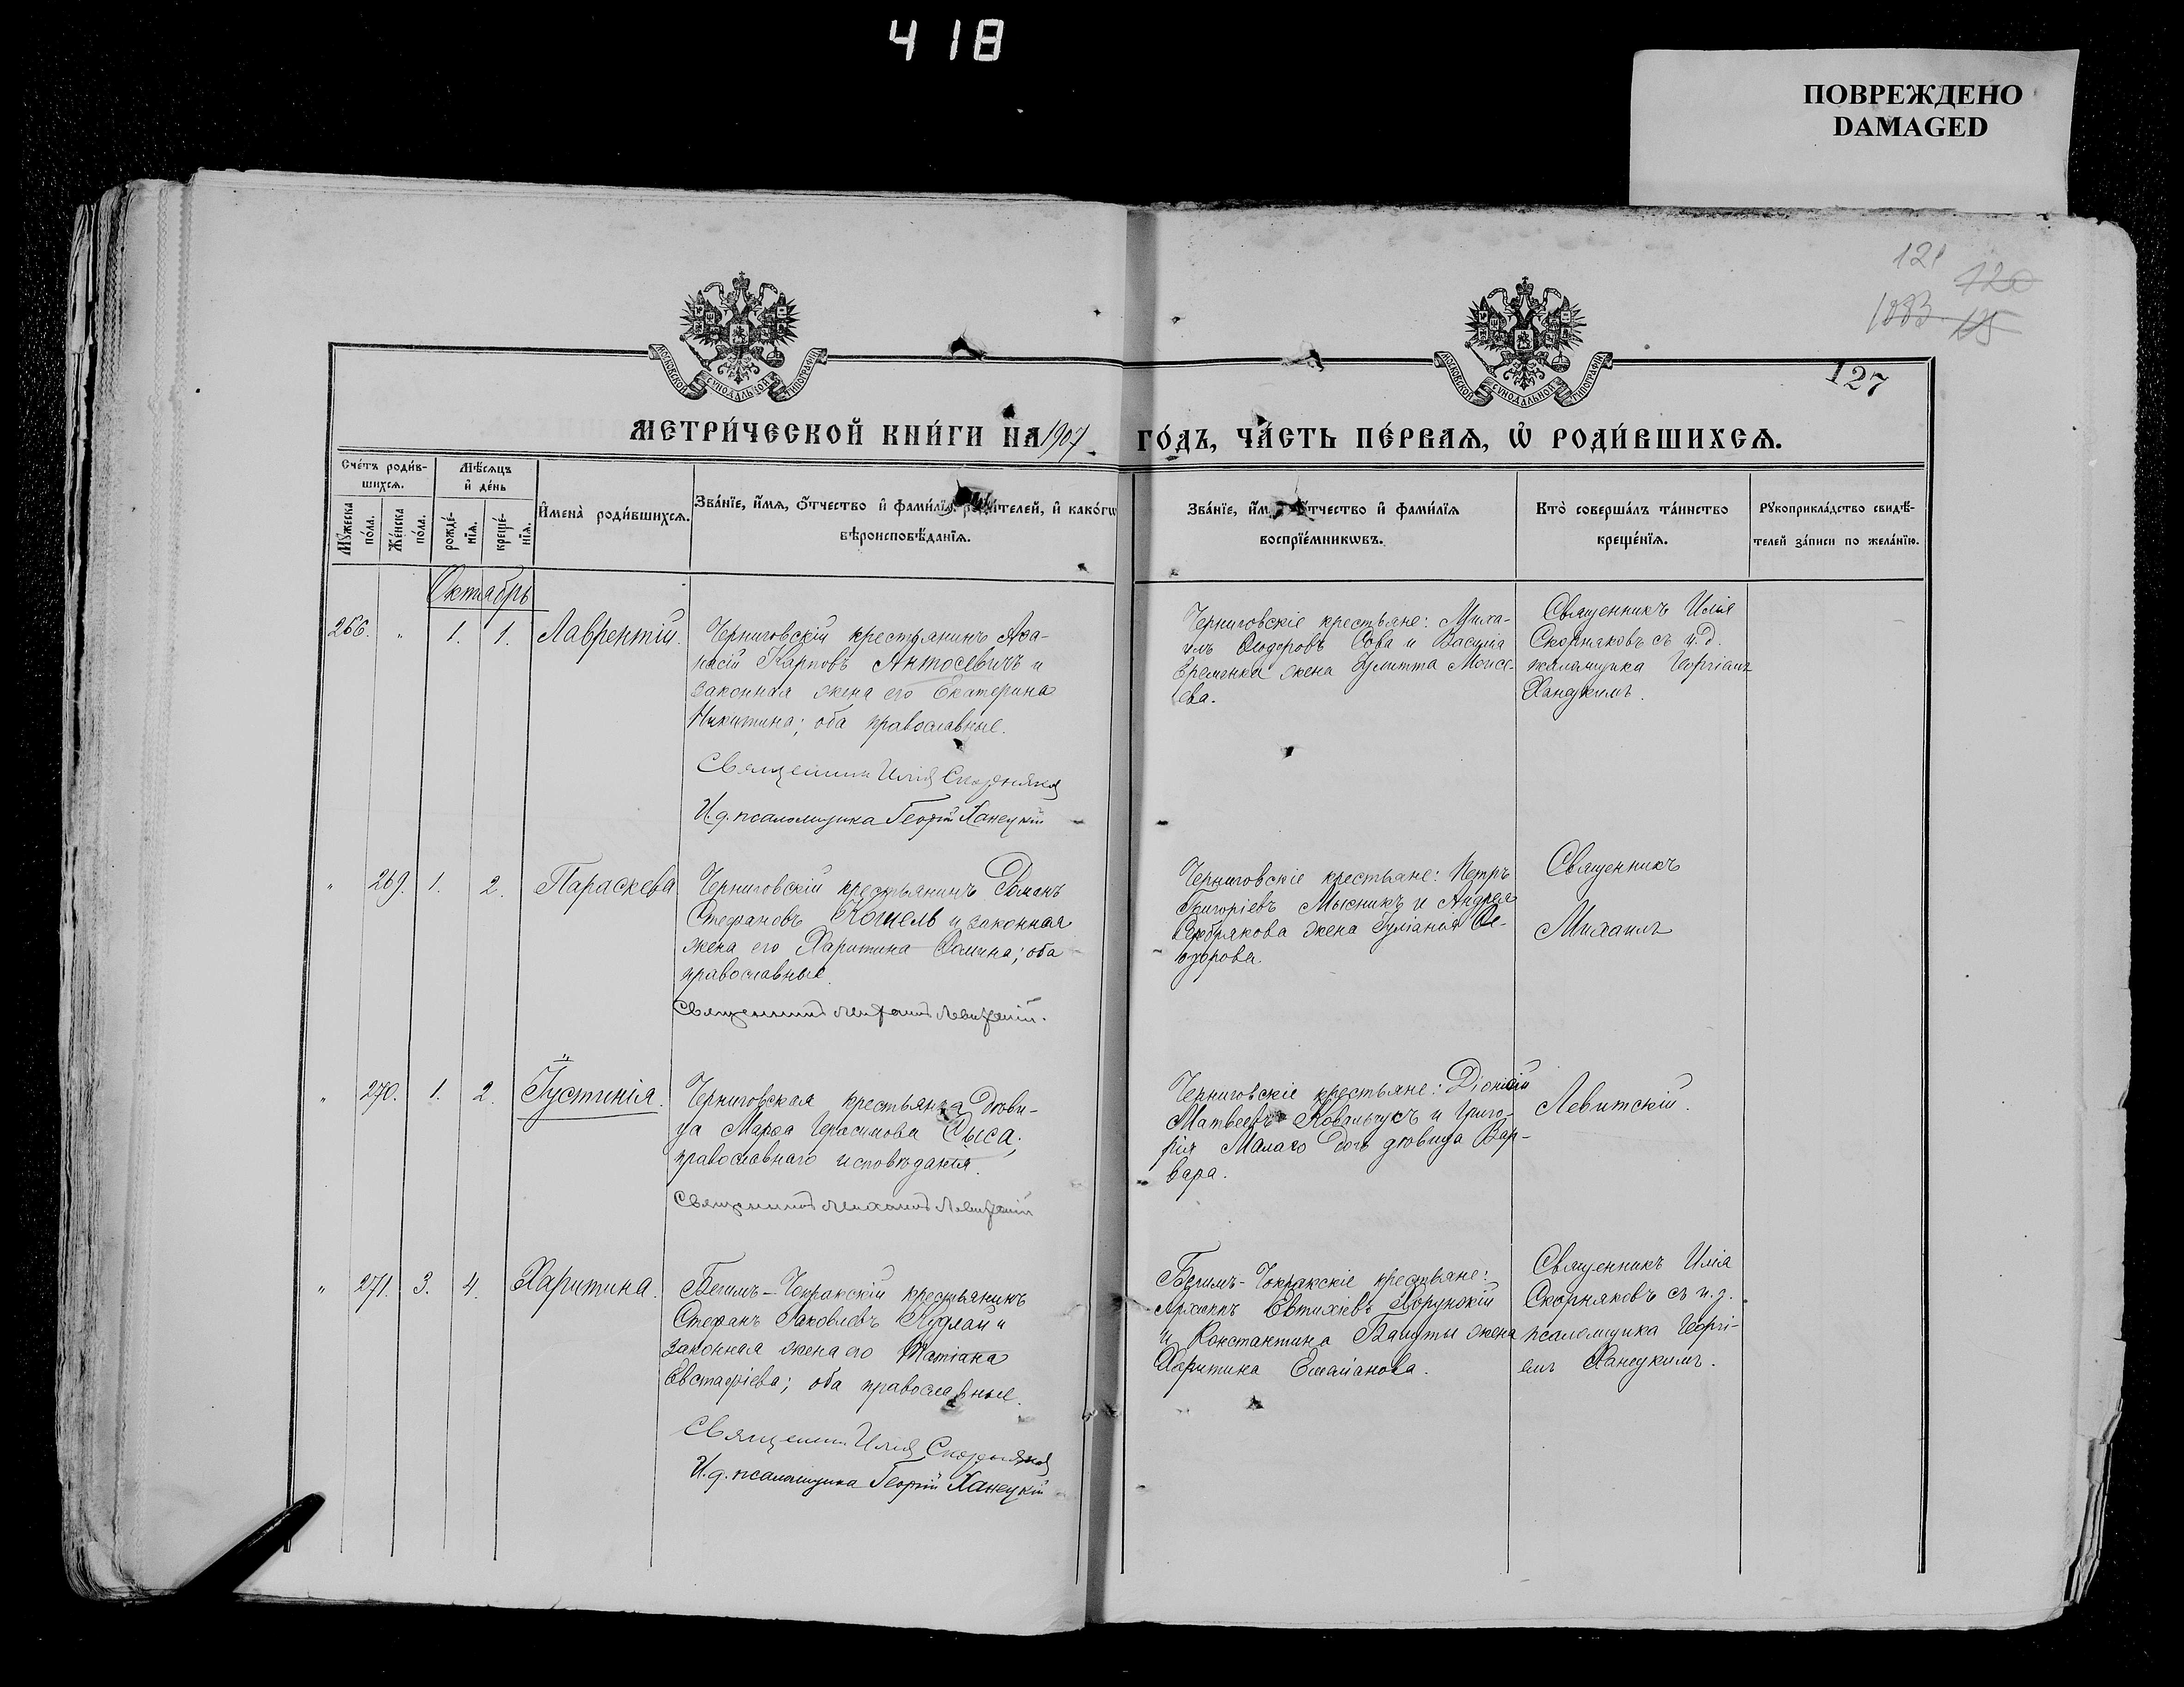 418
ПОВРЕЖДЕНО
DAMAGED
121 120
1083 125
127
МОСКОВСКОЙ СѴНОДАЛЬНОЙ ТИПОГРАФІИ
МОСКОВСКОЙ СѴНОДАЛЬНОЙ ТИПОГРАФІИ
МЕТРИ́ЧЕСКОЙ КНИ́ГИ НА 1907 ГО́ДЪ, ЧА́СТЬ ПЕ́РВАѦ, Ѡ҆ РОДИ́ВШИХСѦ.
Сче́тъ роди́в-
шихсѧ.
Мѣ́сѧцъ
и҆ де́нь
Мꙋ́жеска по́ла.
Же́нска по́ла.
рожде́-
нїѧ.
креще́-
нїѧ.
И҆мена̀ роди́вшихсѧ.
Зва́нїе, и҆́мѧ, ѻ҆́тчество и҆ фами́лїѧ роди́телей, и҆ како́гѡ
вѣроисповѣ́данїѧ.
Зва́нїе, и҆́мѧ, ѻ҆́тчество и҆ фами́лїѧ
воспрїе́мникѡвъ.
Кто̀ соверша́лъ та́инство
креще́нїѧ.
Рꙋкоприкла́дство свидѣ́-
телей за́писи по жела́нїю.
Октябрь
266. " 1. 1. Лаврентій.
Черниговскій крестьянинъ Аѳа-
насій Карповъ Антосевичъ и
законная жена его Екатерина
Никитина; оба православные.
Священникъ Илія Скорняковъ
И.д. псаломщика Георгій Ханецкій
Черниговскіе крестьяне: Миха-
илъ Ѳеодоровъ Сова и Василія
Еременка жена Іулитта Моисе-
ева.
Священникъ Илія
Скорняковъ съ и.д.
псаломщика Георгіемъ
Ханецкимъ.
" 269. 1. 2. Параскева
Черниговскій крестьянинъ Романъ
Стефановъ Кошель и законная
жена его Харитина Ѳомина; оба
православные.
Священникъ Михаилъ Левитскій.
Черниговскіе крестьяне: Петръ
Григоріевъ Мысникъ и Андрея
Серебрякова жена Іуліанія Ѳе-
одорова.
Священникъ
Михаилъ
" 270. 1. 2. Іустинія.
Черниговская крестьянка дѣви-
ца Марѳа Герасимова Сыса,
православнаго исповѣданія.
Священникъ Михаилъ Левитскій
Черниговскіе крестьяне: Діонисій
Матвеевъ Ковальчукъ и Григо-
рія Малаго дочь дѣвица Вар-
вара.
Левитскій.
" 271. 3. 4. Харитина.
Бегимъ-Чокракскій крестьянинъ
Стефанъ Іаковлевъ Кудлай и
законная жена его Татіана
Евстафіева; оба православные.
Священникъ Илія Скорняковъ
И.д. псаломщика Георгій Ханецкій
Бегимъ-Чокракскіе крестьяне:
Архиппъ Евтихіевъ Хорунжій
и Константина Балуты жена
Харитина Емиліанова.
Священникъ Илія
Скорняковъ съ и.д.
псаломщика Георгі-
емъ Ханецкимъ.